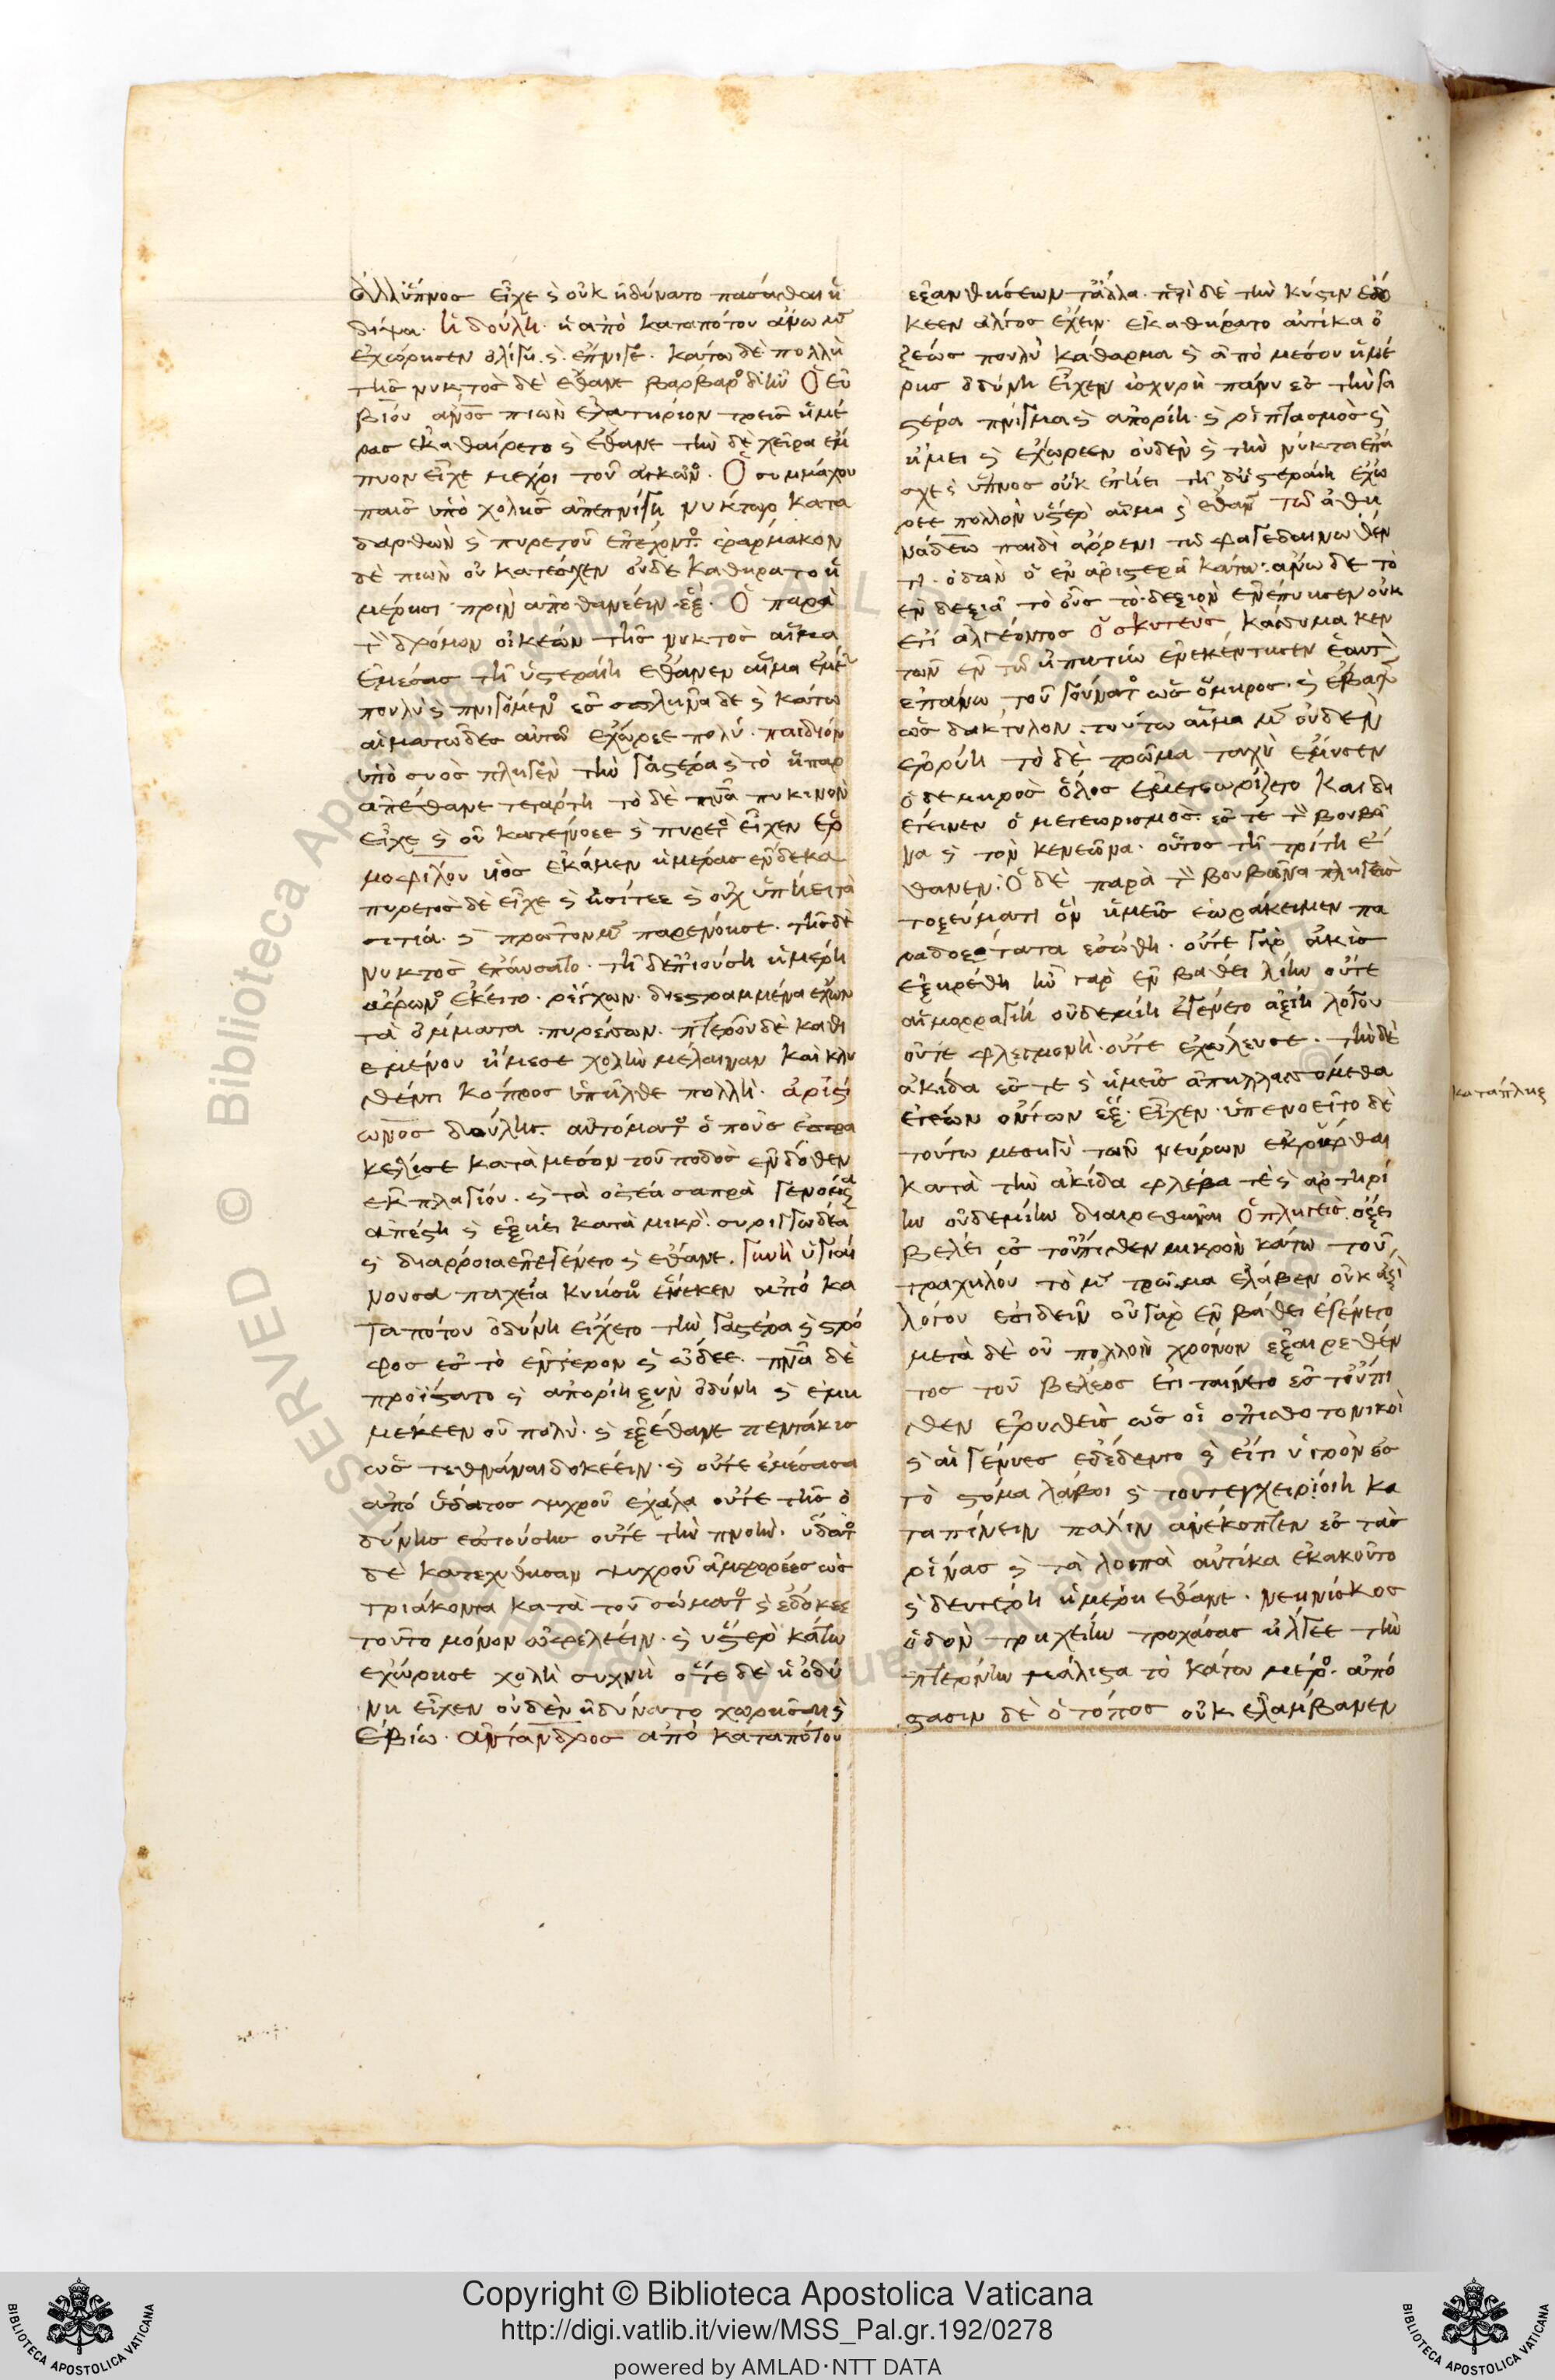 ἀλλ' ὕπνος εἶχε καὶ οὐκ ἠδύνατο πάσασθαι ἢ
δίψα. ἡ δούλη. ἡ ἀπὸ καταπότου ἄνω μὲν
ἐχώρησεν ὀλίγη. καὶ ἔπνιγε. κάτω δὲ πολλὴ
τῆς νυκτὸς δὲ ἔθανε βάρβαρος δὲ ἦν Ὁ εὐ
βίου ἄνος πιὼν ἐλατήριον τρεῖς ἡμέ
ρας ἐκαθαίρετο καὶ ἔθανε τὴν δὲ χεῖρα ἔμ
πυον εἶχε μέχρι τοῦ ἀγκῶνος. Ὁ συμμάχου
παῖς ὑπὸ χολῆς ἀπεπνίγη νύκτωρ κατα
δαρθὼν καὶ πυρετοῦ ἐπέχοντος φάρμακον
δὲ πιὼν οὐ κατέσχεν οὐδὲ καθήρατο ἡ
μέρῃσι πρὶν ἀποθανέειν ἕξ. Ὁ παρὰ
τὸν δρόμον οἰκέων τῆς νυκτὸς αἷμα
ἐμέσας τῇ ὑστεραίῃ ἔθανεν αἷμα ἐμέων
πουλὺ καὶ πνιγόμενος ἐς σπλῆνα δὲ καὶ κάτω
αἱματῶδες αὐτῷ ἐχώρεε πολύ. παιδίον
ὑπὸ συὸς πληγὲν τὴν γαστέρα καὶ τὸ ἧπαρ
ἀπέθανε τετάρτῃ τὸ δὲ πνᾶ πυκινὸν
εἶχε καὶ οὐ κατενόεε καὶ πυρετὸς εἶχεν ἑρ
μοφίλου υἱὸς ἔκαμεν ἡμέρας ἕνδεκα
πυρετὸς δὲ εἶχε καὶ ἠσίτεε καὶ οὐχ ὑπῄει τὰ
σιτία. καὶ πρῶτον μὲν παρενόησε. τῆς δὲ
νυκτὸς ἐπαύσατο. τῇ δ' ἐπιούσῃ ἡμέρῃ
ἄφωνος ἔκειτο. ῥέγχων. διεστραμμένα ἔχων
τὰ ὄμματα. πυρέσσων. πτεροῦ δὲ καθι
εμένου ἤμεσε χολὴν μέλαιναν καὶ κλυ
σθέντι κόπρος ὑπῆλθε πολλή. ἀριστί
ωνος δούλης. αὐτόματος ὁ ποῦς ἐσφα
κέλισε κατὰ μέσον τοῦ ποδὸς ἔνδοθεν
ἐκ πλαγίου. καὶ τὰ ὀστέα σαπρὰ γενόμενα
ἀπέστη καὶ ἐξῄει κατὰ μικρὸν. συριγγώδεα
καὶ διάρροια ἐπεγένετο καὶ ἔθανε. Γυνὴ ὑγιαί
νουσα παχεῖα κυήσιος ἕνεκεν ἀπὸ κα
ταπότου ὀδύνη εἴχετο τὴν γαστέρα καὶ στρό
φος ἐς τὸ ἔντερον καὶ ᾤδεε. πνᾶ δὲ
προίστατο καὶ ἀπορίη ξὺν ὀδύνῃ καὶ ἐμη
μέκεεν οὐ πολύ. καὶ ἐξέθανε πεντάκις
ὡς τεθνάναι δοκέειν. καὶ οὔτε ἐμέσασα
ἀπὸ ὕδατος ψυχροῦ ἐχάλα οὔτε τῆς ὀ
δύνης ἐπιούσης οὔτε τὴν πνοήν. ὕδατος
δὲ κατεχύθησαν ψυχροῦ ἀμφορέες ὡς
τριάκοντα κατὰ τοῦ σώματος καὶ ἐδόκεε
τοῦτο μόνον ὠφελέειν. καὶ ὕστερον κάτω
ἐχώρησε χολὴ συχνὴ ὅτε δὲ ἡ ὀδύ
νη εἶχεν οὐδὲν ἠδύνατο χωρῆσαι καὶ
ἐβίω. ἄντανδρος ἀπὸ καταπότου
ἐξανθησέων τἄλλα. περὶ δὲ τὴν κύστιν ἐδό
κεεν ἄλγος ἔχειν. ἐκαθήρατο αὐτίκα ὀ
ξέως πουλὺ κάθαρμα καὶ ἀπὸ μέσου ἡμέ
ρης ὀδύνη εἶχεν ἰσχυρὴ πάνυ ἐς τὴν γα
στέρα πνῖγμα καὶ ἀπορίη. καὶ ῥιπτασμὸς καὶ
ἤμει καὶ ἐχώρεεν οὐδὲν καὶ τὴν νύκτα ἐπά
σχε καὶ ὕπνος οὐκ ἐπῄει τῇ δ' ὑστεραίῃ ἐχώ
ρεε πολλὸν ὕστερον αἷμα καὶ ἔθανε Τῷ ἀθη
νάδεω παιδὶ ἄρρενι τῷ φαγεδαινωθέν
τι. ὀδὼν ὁ ἐν ἀριστερᾷ κάτω. ἄνω δὲ τὸ
ἐν δεξιᾷ τὸ οὖς τὸ δεξιὸν ἐνεπύησεν οὐκ
ἔτι ἀλγέοντος Ὁ σκυτεὺς κάσσυμα κεν
τῶν ἐν τῷ ὀπητίῳ ἐνεκέντησεν ἑαυτὸν
ἐπάνω τοῦ γούνατος ὡς ὁ μηρός. καὶ ἔβαψεν
ὡς δάκτυλον. τούτῳ αἷμα μὲν οὐδὲν
ἐρρύη τὸ δὲ τρῶμα ταχὺ ἔμυσεν
ὁ δὲ μηρὸς ὅλος ἐμετεωρίζετο καὶ δι
έτεινεν ὁ μετεωρισμὸς. ἔς τε τὸν βουβῶ
να καὶ τὸν κενεῶνα. οὗτος τῇ τρίτῃ ἔ
θανεν. Ὁ δὲ παρὰ τὸν βουβῶνα πληγεὶς
τοξεύματι ὃν ἡμεῖς ἑωράκειμεν πα
ραδοξότατα ἐσώθη. οὔτε γὰρ ἀκὶς
ἐξῃρέθη ἦν γὰρ ἐν βάθει λίην οὔτε
αἱμορραγίη οὐδεμίη ἐγένετο ἀξίη λόγου
οὔτε φλεγμονὴ. οὔτε ἐχώλευσε. τὴν δὲ
ἀκίδα ἔς τε καὶ ἡμεῖς ἀπηλλασσόμεθα
ἐτέων ὄντων ἕξ. εἶχεν. ὑπενοεῖτο δὲ
τούτῳ μεσηγὺ τῶν νεύρων ἐκκρύφθαι
κατὰ τὴν ἀκίδα φλέβα τὲ καὶ ἀρτηρί
ην οὐδεμίην διαιρεθῆναι Ὁ πληγεὶς ὀξεῖ
βέλει ἐς τοὔπισθεν μικρὸν κάτω τοῦ
τραχήλου τὸ μὲν τρῶμα ἔλαβεν οὐκ ἄξιον
λόγου ἐσιδεῖν οὐ γὰρ ἐν βάθει ἐγένετο
μετὰ δὲ οὐ πολλὸν χρόνον ἐξαιρεθέν
τος τοῦ βέλεος ἐπιταίνετο ἐς τοὔπι
σθεν ἐρυσθεὶς ὡς οἱ ὀπισθοτονικοὶ
καὶ αἱ γένυες ἐδέδεντο καὶ εἴ τι ὑγρὸν ἐς
τὸ στόμα λάβοι καὶ τοῦτ' ἐγχειρίοιη κα
ταπίνειν πάλιν ἀνέκοπτεν ἐς τὰς
ῥῖνας καὶ τὰ λοιπὰ αὐτίκα ἐκακοῦτο
καὶ δευτέρῃ ἡμέρῃ ἔθανε. νεηνίσκος
ὁδὸν τρηχείην τροχάσας ἤλγεε τὴν
πτέρνην μάλιστα τὸ κάτω μέρος. ἀπό
στασιν δὲ ὁ τόπος οὐκ ἐλάμβανεν
κατάπληξ
Copyright © Biblioteca Apostolica Vaticana
http://digi.vatlib.it/view/MSS_Pal.gr.192/0278
powered by AMLAD·NTT DATA
BIBLIOTECA APOSTOLICA VATICANA
BIBLIOTECA APOSTOLICA VATICANA